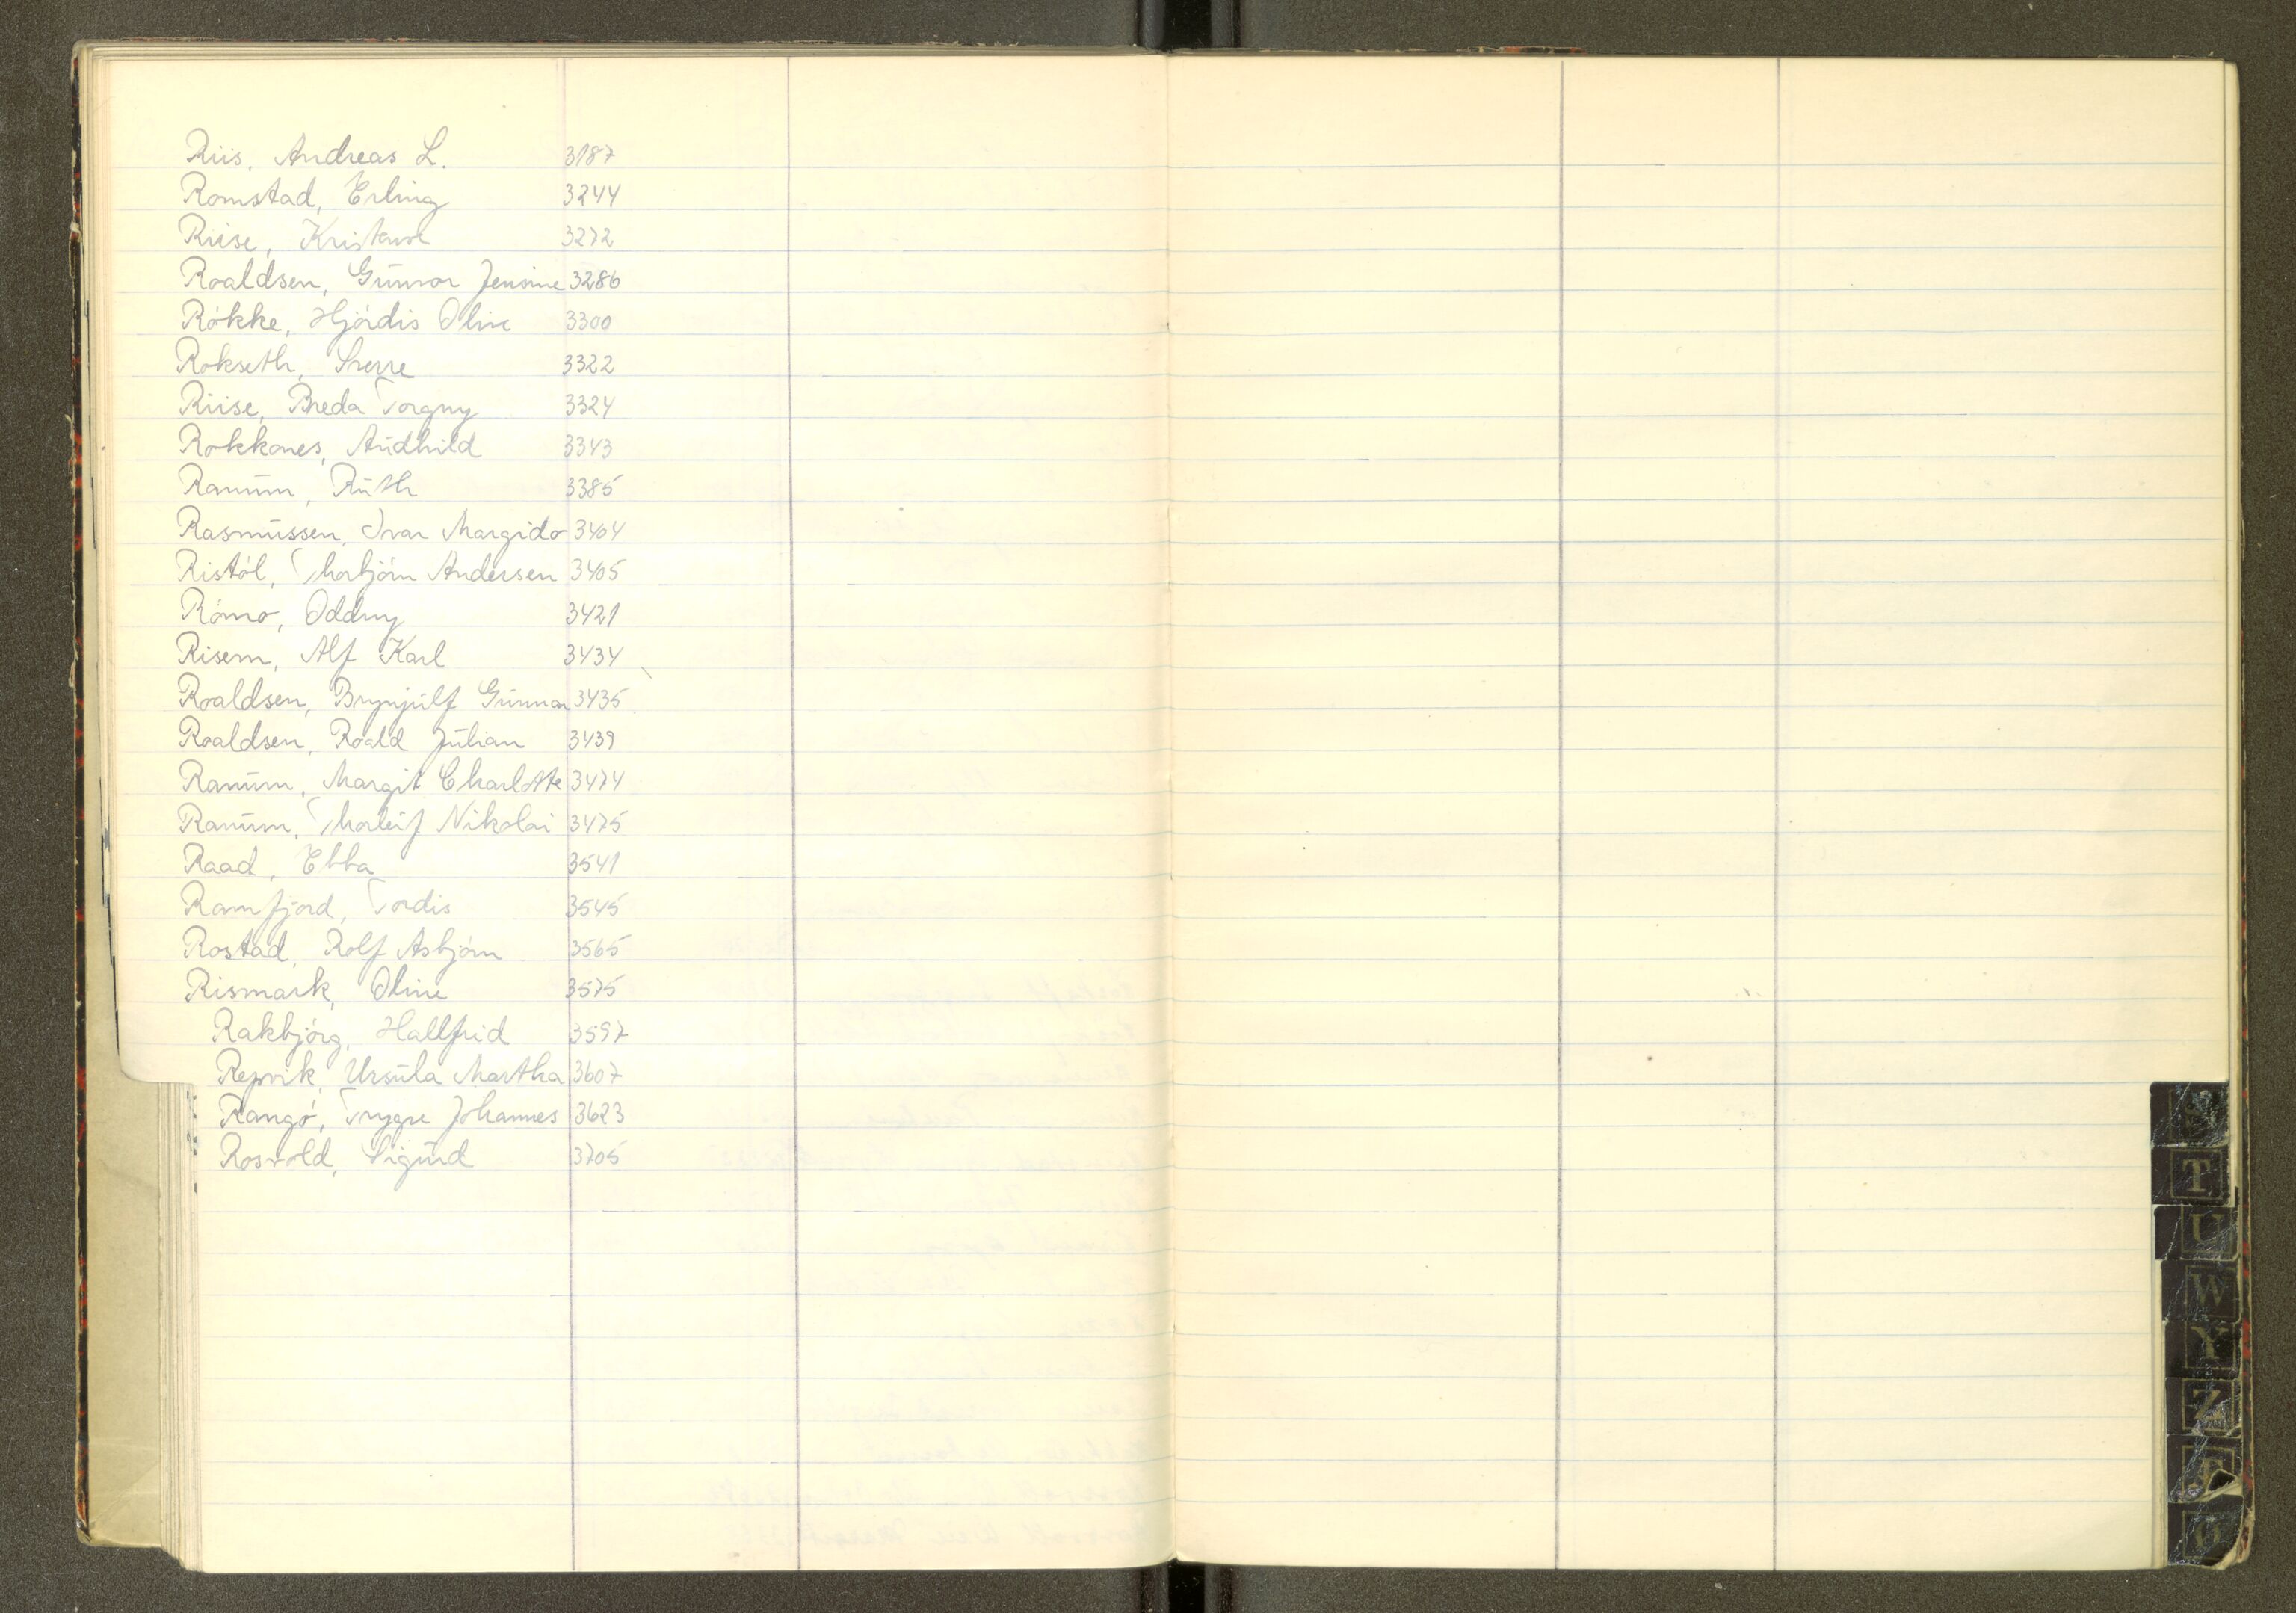 Riis, Andreas L. 3187
Romstad, Erling 3244
Riise, Kristense 3272
Roaldsen, Gunvor Jensine 3286
Røkke, Hjørdis Oline 3300
Rokseth, Sverre 3322
Riise, Breda Torgny 3324
Rokkones, Audhild 3343
Ranum, Ruth 3385
Rasmussen, Ivar Margido 3404
Ristøl, Thorbjørn Andersen 3405
Rømo, Oddny 3421
Risem, Alf Karl 3434
Roaldsen, Brynjulf Gunnar 3435
Roaldsen, Roald Julian 3439
Ranum, Margit Charlotte 3474
Ranum, Thorleif Nikolai 3475
Raad, Ebba 3541
Ramfjord, Tordis 3545
Rostad, Rolf Asbjørn 3565
Rismark, Oline 3575
Rakbjørg, Hallfrid 3597
Repvik, Ursula Martha 3607
Rangø, Trygve Johannes 3623
Rosvold, Sigurd 3705
S
T
U
W
Y
Z
Æ
Ø